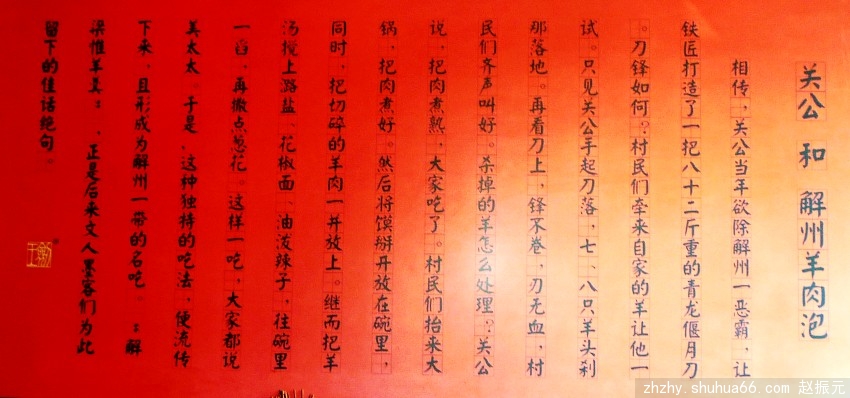 关公 和 解州羊肉泡
相传，关公当年欲除解州一恶霸，让
铁匠打造了一把八十二斤重的青龙偃月刀
。刀锋如何？村民们牵来自家的羊让他一
试。只见关公手起刀落，七、八只羊头刹
那落地。再看刀上，锋不卷，刃无血，村
民们齐声叫好。杀掉的羊怎么处理？关公
说，把肉煮熟，大家吃了。村民们抬来大
锅，把肉煮好。然后将馍掰开放在碗里，
同时，把切碎的羊肉一并放上。继而把羊
汤搅上潞盐、花椒面、油泼辣子，往碗里
一舀，再撒点葱花。这样一吃，大家都说
美太太。于是，这种独特的吃法，便流传
下来，且形成为解州一带的名吃。“解
梁惟羊美”，正是后来文人墨客们为此
留下的佳话绝句。
zhzhy.shuhua66.com 赵振元